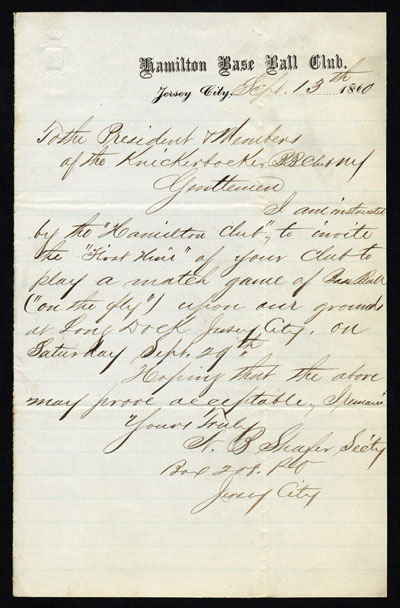 Hamilton Base Ball Club.
Jersey City, Sept. 13th 1860
To the President & Members
of the Knickerbocker B B Club NY
Gentlemen
I am instructed
by the "Hamilton Club", to invite
the "First Nine" of your Club to
play a match game of Base Ball
("on the fly") upon our grounds
at Long Dock Jersey City, on
Saturday Sept. 29th.
Hoping that the above
may prove acceptable, I remain
Yours Truly
A. B Shafer Secty
Box 208. PO
Jersey City